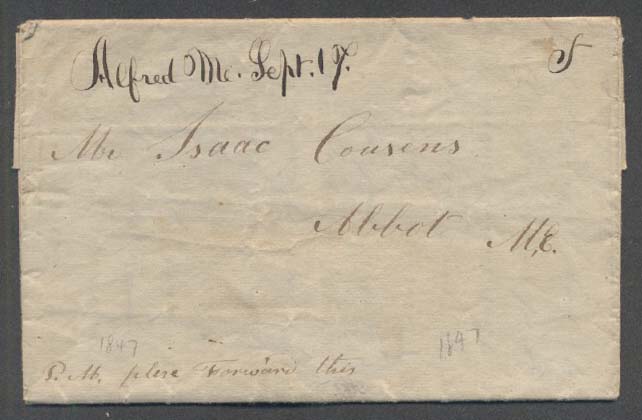 Alfred Me. Sept. 17. 5
Mr Isaac Cousens
Abbot Me.
1847 1847
P. M. plese Forward this